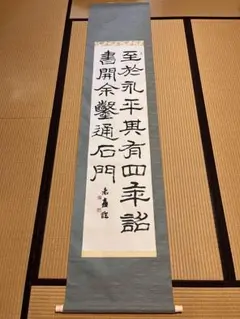 至於永平其有四年詔
書開余鑿通石門